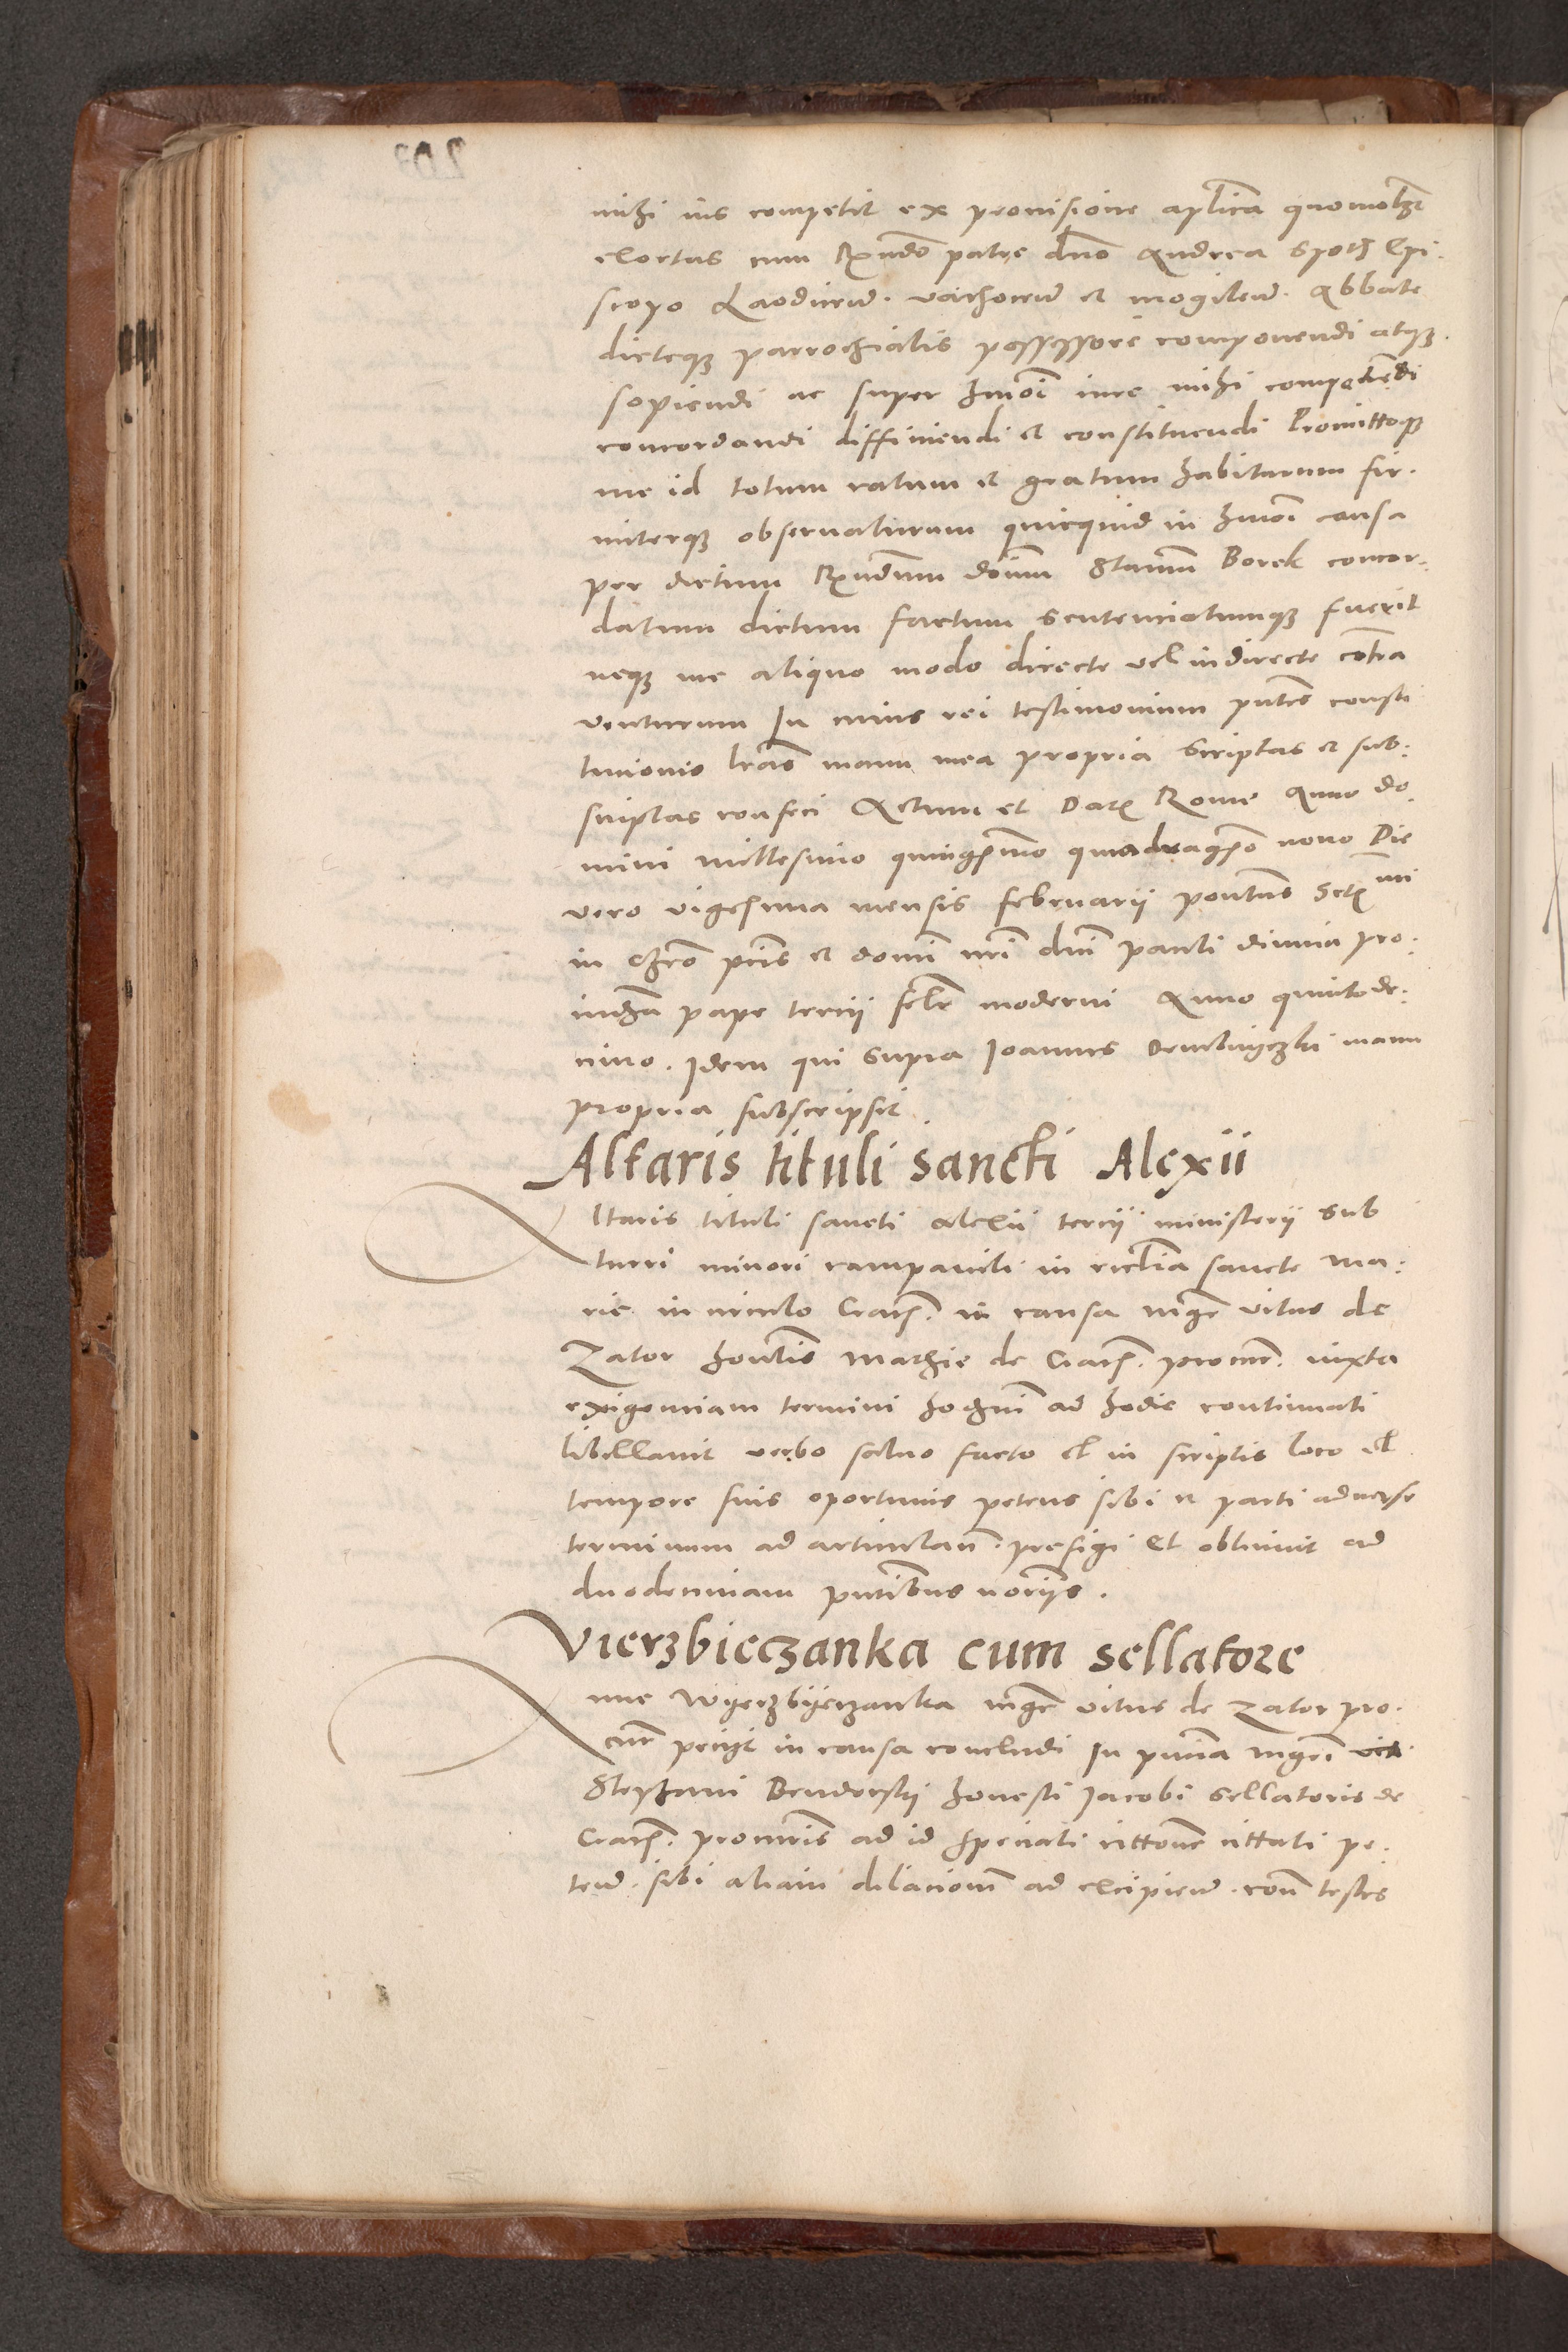 mihi ius competit ex provisione aplica quomodolibet
exortas cum Rndo patre dno Andrea Spoth Epi-
scopo Laodicen. vachocen et mogilen. Abbate
dicteque parrochialis possessore componendi atque
sopiendi ac super hmoi iure mihi competendi
concordandi diffiniendi et constituendi Promittoque
me id totum ratum et gratum habiturum fir-
miterque observaturum quicquid in hmoi causa
per dictum Rndum dnum Stanum Borek concor-
datum dictum factum sentenciatumque fuerit
neque me aliquo modo directe vel indirecte contra
venturum In cuius rei testimonium pntes consti
tucionis lras manu mea propria scriptas et sub-
scriptas confeci Actum et Dat Rome Anno do-
mini millesimo quingmo quadragesimo nono Die
vero vigesima mensis februarii pontus Sctmi
in Chro pris et domini nri dni Pauli divina pro-
videncia pape tercii felr moderni Anno quintode-
cimo. Idem qui supra Joannes manu
propria subscripsit.
Altaris tituli sancti Alexii
Altaris tituli sancti Alexii tercii ministerii sub
turri minori campanili in ecclia sancte Ma-
rie in circulo Crac. in causa mgr vitus de
Zator hontis Mathie de Crac. procur. iuxta
exigenciam termini hodierni ad hodie continuati
libellavit verbo salvo facto et in scriptis loco et
tempore suis oportunis petens sibi et parti adverse
terminum ad articulan. prefigi et obtinuit ad
duodecimam pntibus notariis.
Vierzbieczanka cum sellatore
Anne Wyerzbyeczanka mgr vitus de Zator pro-
cur petiit in causa concludi In pncia mgri vit
Stephani Benderskii honesti Jacobi sellatoris de
Crac. procuris ad id speciali cittone cittati pe-
ten. sibi aliam dilacionem ad excipien. con testes